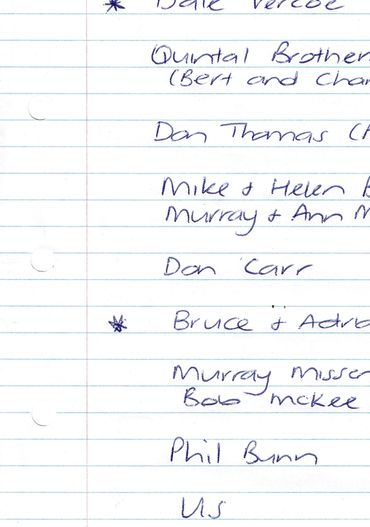 * Dale Vercoe
Quintal Brother
(Bert and Cha
Don Thomas (
Mike & Helen B
Murray & Ann M
Don Carr
* Bruce & Adri
Murray Miss
Bob McKee
Phil Bunn
Us